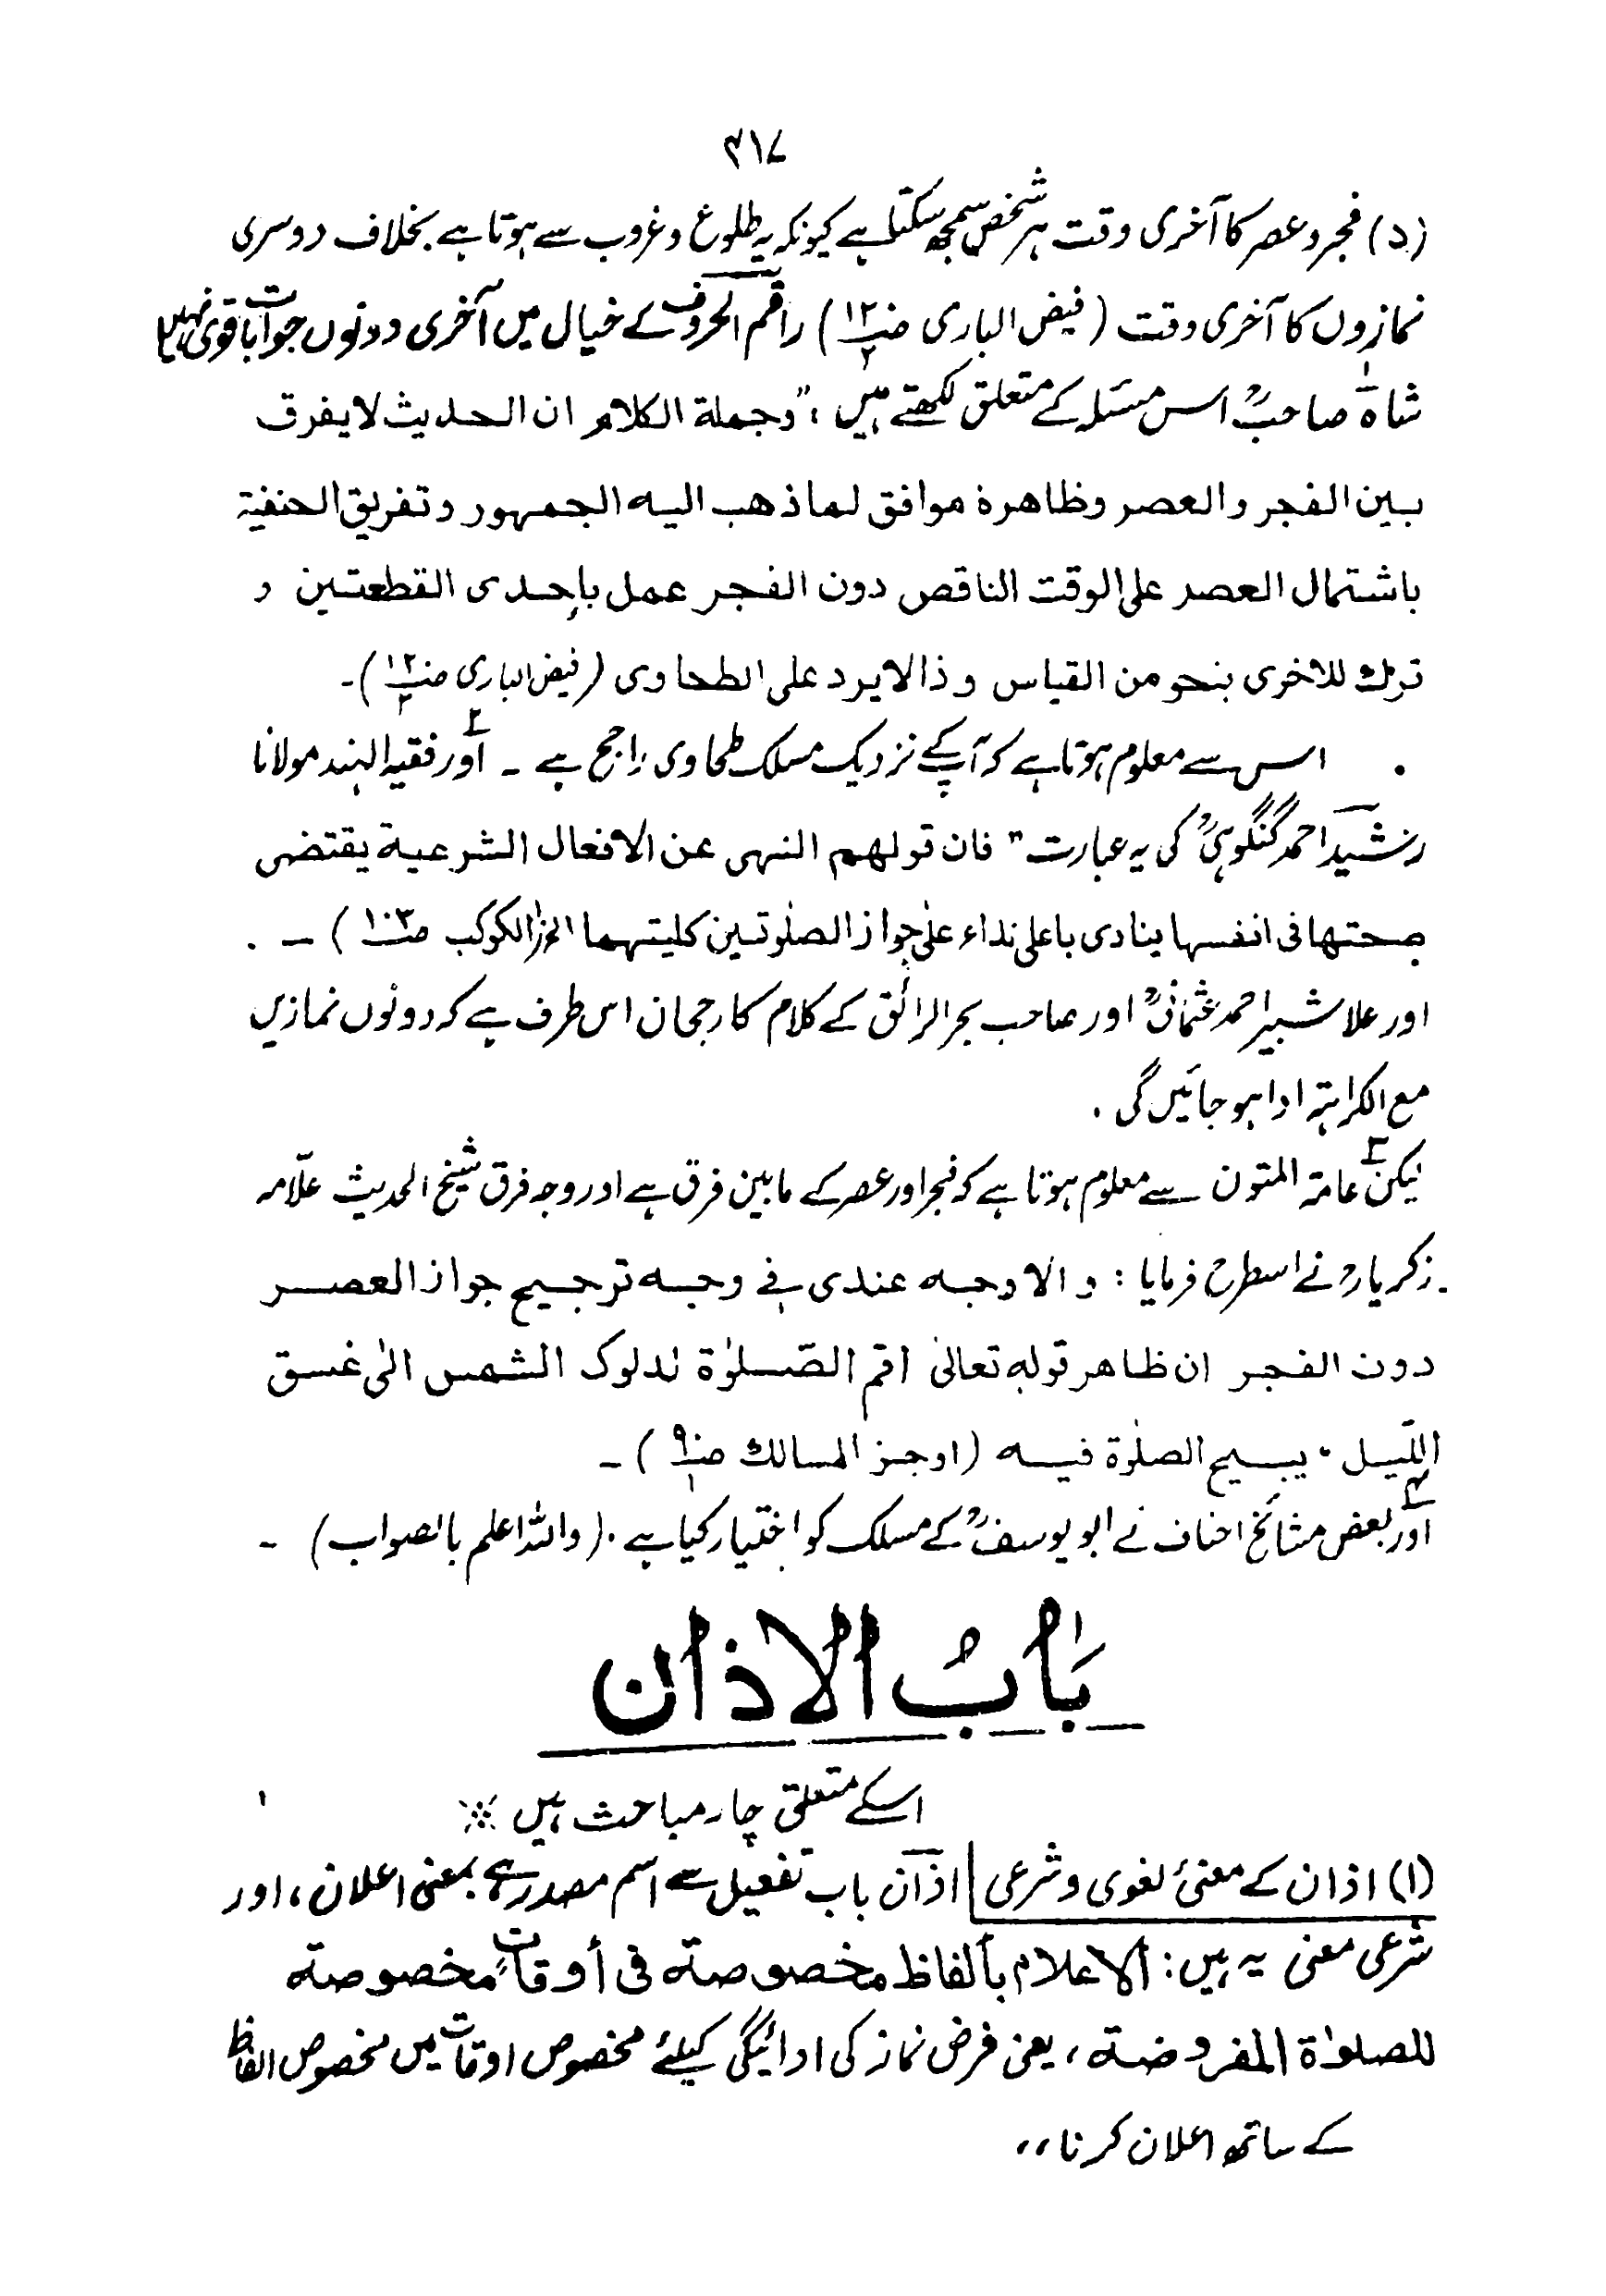 ۴۱۷
(د) فجر و عصر کا آخری وقت ہر شخص سمجھ سکتا ہے کیونکہ یہ طلوع و غروب سے ہوتا ہے بخلاف دوسری
نمازوں کا آخری وقت (فیض الباری صـ۱۲۰/۲) راقم الحروف کے خیال میں آخری دونوں جوابات قوی نہیں
شاہ صاحبؒ اس مسئلہ کے متعلق لکھتے ہیں، "وجملة الکلام ان الحدیث لا یفرق
بین الفجر والعصر وظاهرہ موافق لما ذهب الیه الجمهور وتفریق الحنفیة
باشتمال العصر علی الوقت الناقص دون الفجر عمل بإحدی القطعتین و
ترك للاخری بنحو من القیاس وذا لا یرد علی الطحاوی (فیض الباری صـ۱۲۰/۲)۔
اس سے معلوم ہوتا ہے کہ آپ کے نزدیک مسلک طحاوی راجح ہے ۔ ۲؎ اور فقیہ الہند مولانا
رشید احمد گنگوہیؒ کی یہ عبارت" فان قولهم النهی عن الافعال الشرعیة یقتضی
صحتها فی انفسها ینادی باعلی نداء علیٰ جواز الصلٰوتین کلیتهما الخ (الکوکب صـ۱۰۳) ۔
اور علا شبیر احمد عثمانیؒ اور صاحب بحر الرائق کے کلام کا رجحان اس طرف ہے کہ دونوں نمازیں
مع الکراہتہ ادا ہو جائیں گی ۔
۳؎ لیکن عامۃ المتون سے معلوم ہوتا ہے کہ فجر اور عصر کے مابین فرق ہے اور وجہ فرق شیخ الحدیث علّامہ
زکریارؒ نے اسطرح فرمایا : والاوجه عندی فی وجه ترجیح جواز العصر
دون الفجر ان ظاهر قوله تعالیٰ اقم الصّلوٰة لدلوک الشمس الیٰ غسق
اللّیل ۔ یبیح الصلوٰة فیه (اوجز المسالك صـ۹/۱) ۔
۴؎ اور بعض مشائخ احناف نے ابو یوسفؒ کے مسلک کو اختیار کیا ہے ۔ (واللہ اعلم بالصواب) ۔
بَابُ الاذان
اسکے متعلق چار مباحث ہیں
(۱) اذان کے معنئ لغوی و شرعی اذان باب تفعیل سے اسم مصدر ہے بمعنی اعلان، اور
شرعی معنی یہ ہیں: ألاعلام بألفاظ مخصوصة فی أوقاتٍ مخصوصة
للصلوٰة المفروضة، یعنی فرض نماز کی ادائیگی کیلئے مخصوص اوقات میں مخصوص الفاظ
کے ساتھ اعلان کرنا،،